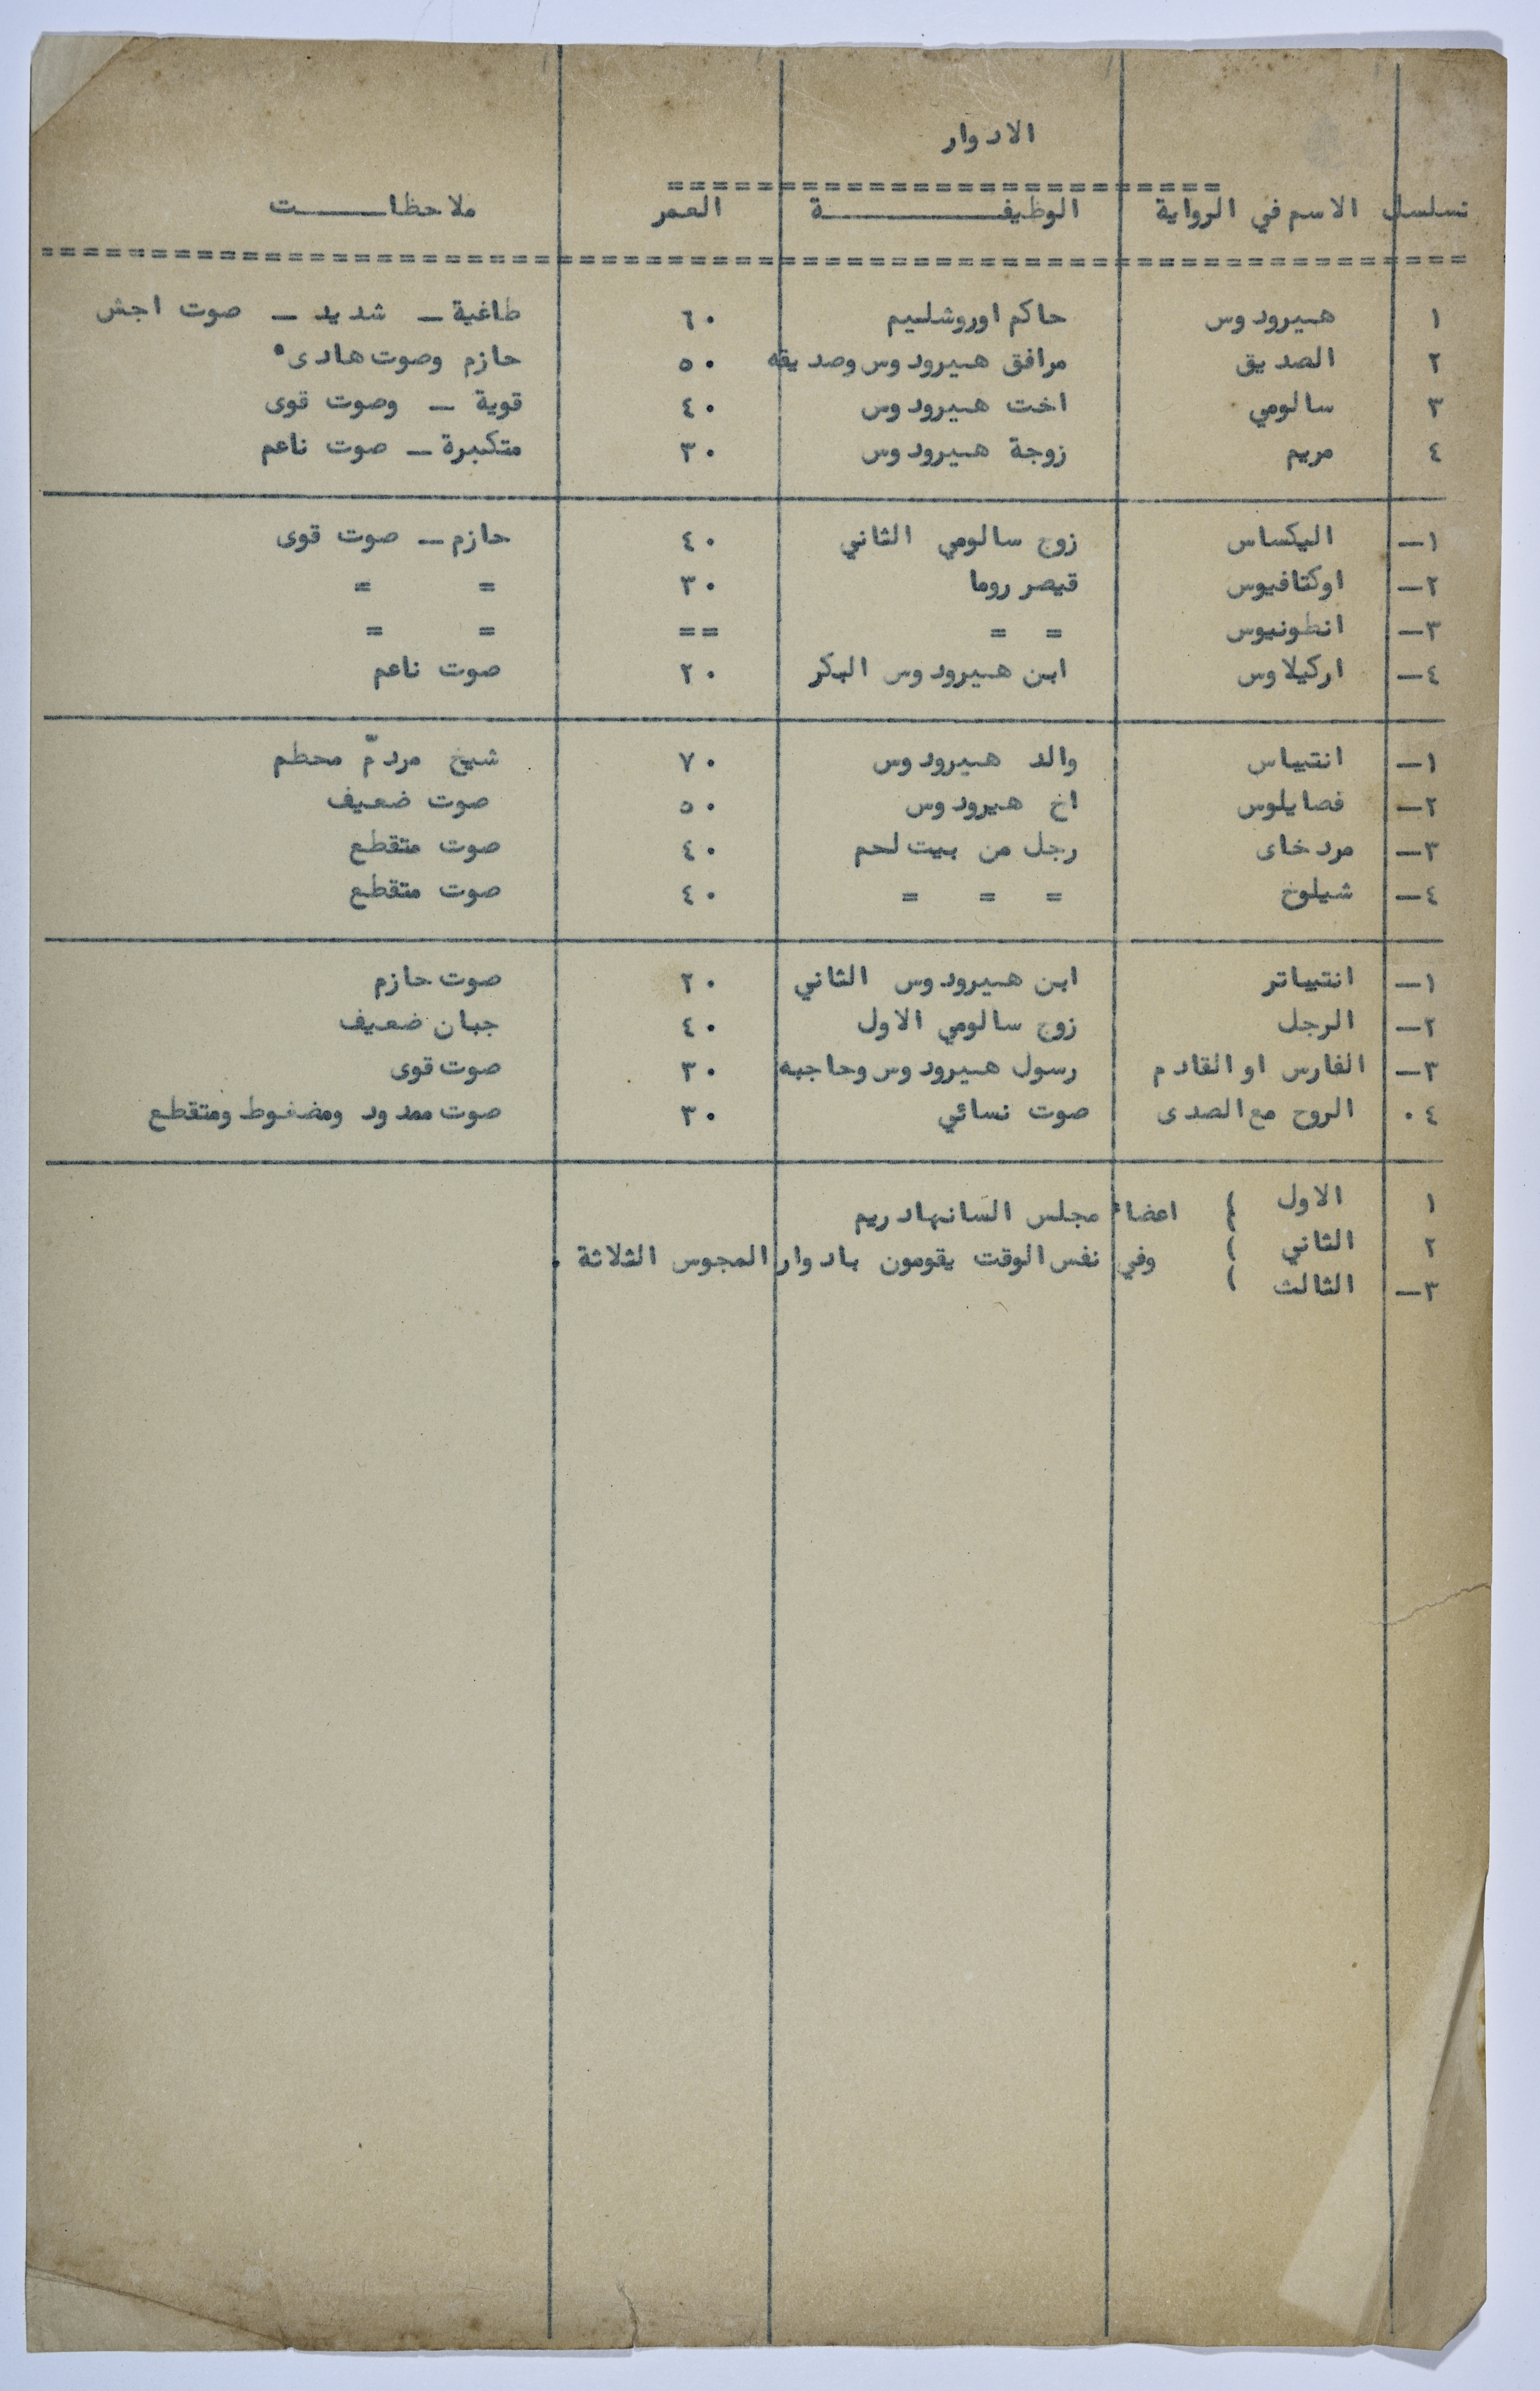 الادوار
==========================
تسلسل الاسم في الرواية الوظيفـــــــــة العمر ملاحظـــات
==================================================
١ هيرودوس حاكم اوروشليم ٦٠ طاغية ـ شديد ـ صوت اجش
٢ الصديق مرافق هيرودوس وصديقه ٥٠ حازم وصوت هادىء
٣ سالومي اخت هيرودوس ٤٠ قوية ـ وصوت قوى
٤ مريم زوجة هيرودوس ٣٠ متكبرة ـ صوت ناعم
١ـ اليكساس زوج سالومي الثاني ٤٠ حازم ـ صوت قوى
٢ـ اوكتافيوس قيصر روما ٣٠ = =
٣ـ انطونيوس = = == = =
٤ـ اركيلاوس ابن هيرودوس البكر ٢٠ صوت ناعم
١ـ انتيباس والد هيرودوس ٧٠ شيخ مردمّ محطم
٢ـ فصايلوس اخ هيرودوس ٥٠ صوت ضعيف
٣ـ مردخاى رجل من بيت لحم ٤٠ صوت متقطع
٤ـ شيلوخ = = = ٤٠ صوت متقطع
١ـ انتيباتر ابن هيرودوس الثاني ٢٠ صوت حازم
٢ـ الرجل زوج سالومي الاول ٤٠ جبان ضعيف
٣ـ الفارس او القادم رسول هيرودوس وحاجبه ٣٠ صوت قوى
٤٠ الروح مع الصدى صوت نسائي ٣٠ صوت ممدود ومضغوط ومتقطع
١ الاول ) اعضاء مجلس السانهادريم
٢ الثاني ) وفي نفس الوقت يقومون بادوار المجوس الثلاثة .
٣ـ الثالث )